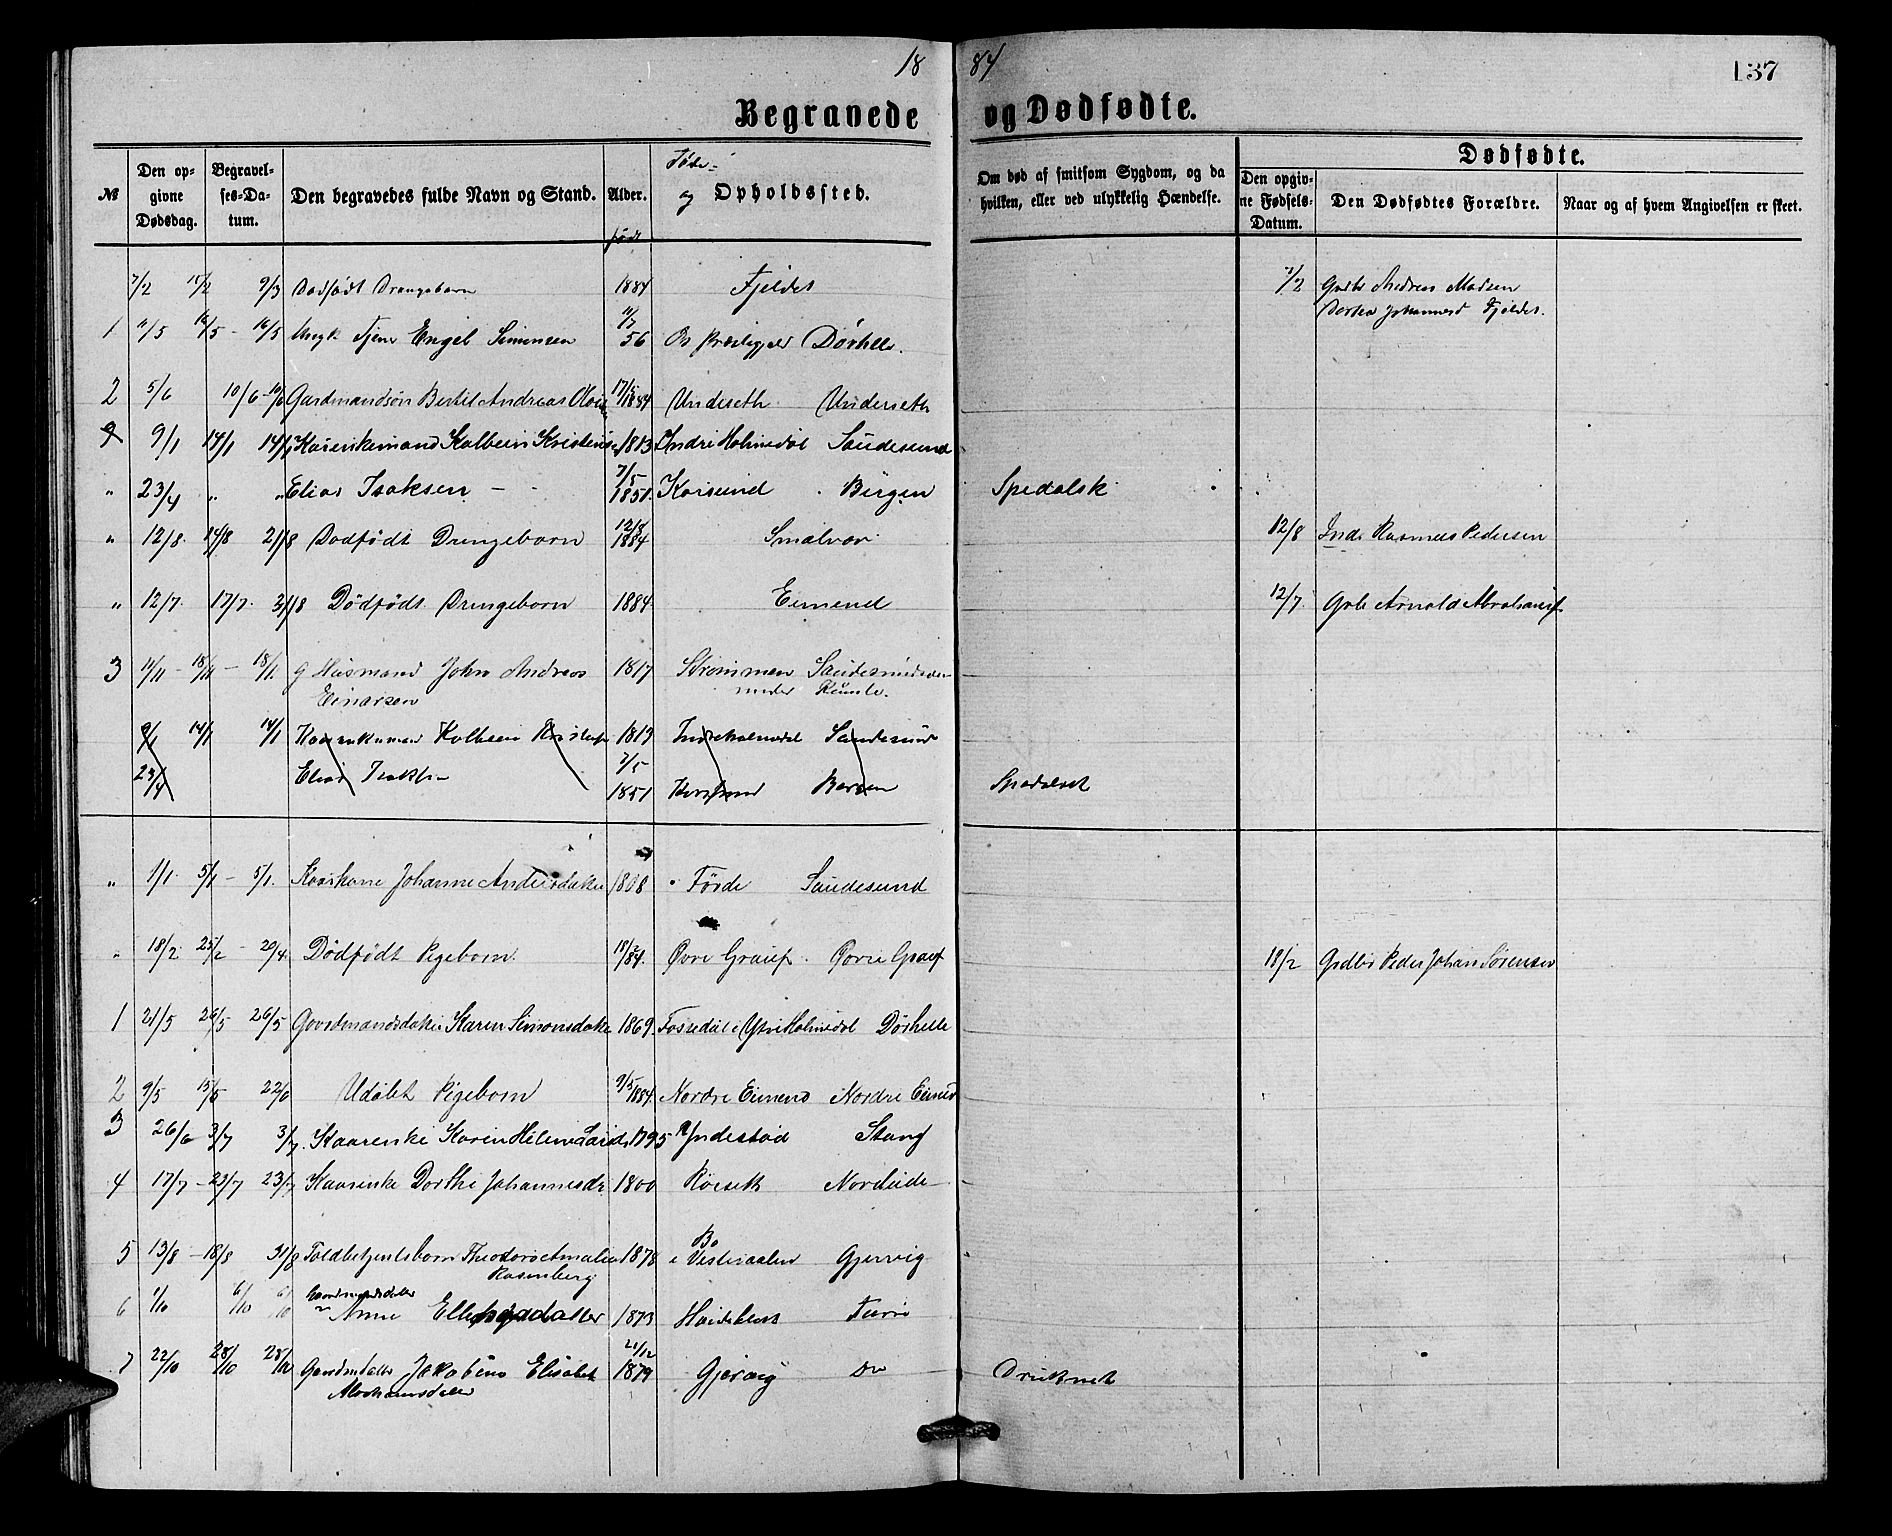 18 84
137
Begravede og Dødfødte.
№ Den opgivne Dødsdag. Begravelses-Datum. Den begravedes fulde Navn og Stand. Alder. født Føde- og Opholdssted. Om død af smitsom Sygdom, og da hvilken, eller ved ulykkelig Hændelse. Dødfødte. Den opgivne Fødsels-Datum. Den Dødfødtes Forældre. Naar og af hvem Angivelsen er skeet.
7/2 9/3 Dødfødt Drengebarn 1884 Fjeldet 7/2 Gbr Andreas Madsen
Dorthea Johannesd Fjeldet.
1 11/5 16/5 - 16/5 Ungk Tjener Engel Simonsen 11/7 56 Præstegjeld Dørhelle.
2 5/6 10/6 - 10/6 Gardmandssøn Bertel Andreas Olsen 17/5 1884 Underseth Underseth
9/1 14/1 14/1 Kaarenkemand Kolbein Kristens 1813 Indre Holmedal Saudesund
" 23/4 " " Elias Isaksen - 7/5 1851. Korsund Bergen Spedalsk
" 12/8. 14/8 21/8 Dødfødt Drengebarn 12/8 1884 Smalvor 12/8 Inds Rasmus Pedersen
" 12/7. 17/7. 31/8 Dödfödt Drengebarn 1884. Eimend 12/7. Gbr Arnold Abrahams.
3 11/11 - 18/11 - 18/11. g Husmand John Andreas 1817 Strömmen
Einarsen under
9/1 14/1 14/1 Kaarenkemand Kolbein 1813 Indreholmedal Saudesund
23/4 Elias Isaks- 7/5 1851 Korssund Bergen Spedalsk
" 1/1. 5/1 - 5/1. Kaarkone Johanne Andersdatter 1808 Förde Saudesund
" 18/2 25/2 - 20/4. Dödfödt Pigebarn. 18/2 84. Øvre Øvre 18/2 Grdbr Peder Johan Sörensen
1 21/5 26/5 26/5 Gaardmandsdatter Karen Simonsdatter 1869. Fossedal i Ytre Holmedal Dörhelle
2 9/5 15/5 22/6 Udöbt Pigebarn 9/5 1884. Nordre Eimend Nordre Eimend
3 26/6 3/7 3/7. Kaarenke Karen Helene 1795 Indestöd Stang
4 17/7 - 23/7 23/7 Kaarenke Dorthe Johannesdr 1800 Röeseth Nordeide
5 13/8 - 18/8 31/8 Toldbetjentsbarn Theodora Amalie 1878 Bo i Vesteraalen Gjervig
Rosenberg
6 1/10 6/10 6/10 Gaardmandsdatter Anne datter 1873 Turie
7 22/10 28/10 28/10 Gaardmdatter Jakobine Elisabet 21/12 1879 Gjervig Do Druknet
Abrahamsdatter